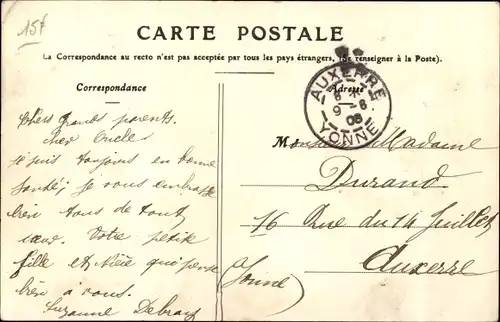 15f
CARTE POSTALE
La Correspondance au recto n'est pas acceptée par tous les pays étrangers, (Se renseigner à la Poste).
Correspondance
Adresse
AUXERRE
9 - 8
08
YONNE
Chers Grands parents.
Cher Oncle
je suis toujours en bonne
santé; je vous embrasse
bien tous de tout
cœur. Votre petite
fille et Nièce qui pense
bien à vous.
Suzanne
Monsieur Madame
Durand
16 Rue du 14 Juillet
Auxerre
Yonne